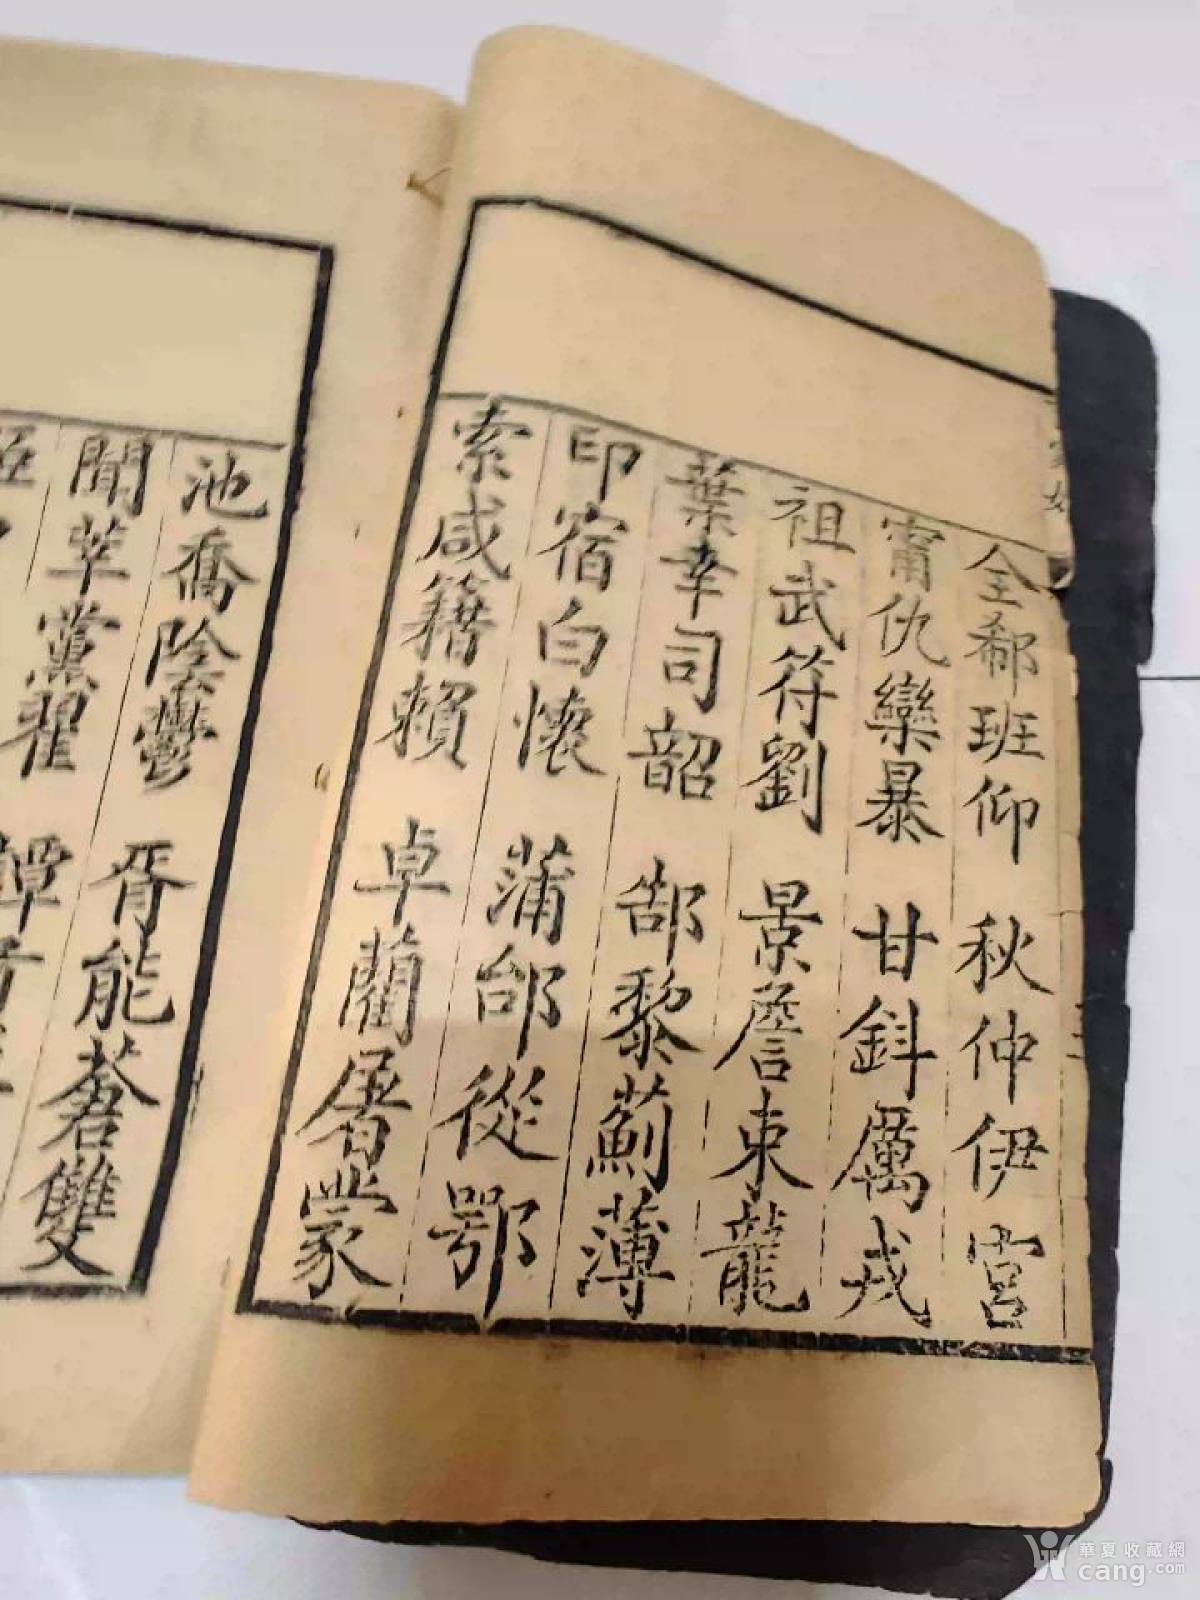 全郗班仰 秋仲伊宮
甯仇欒暴 甘鈄厲戎
祖武符劉 景詹束龍
葉幸司韶 郜黎薊薄
印宿白懷 蒲邰從鄂
索咸籍賴 卓藺屠蒙
池喬陰鬱 胥能蒼雙
聞莘黨翟
華夏收藏網
cang.com